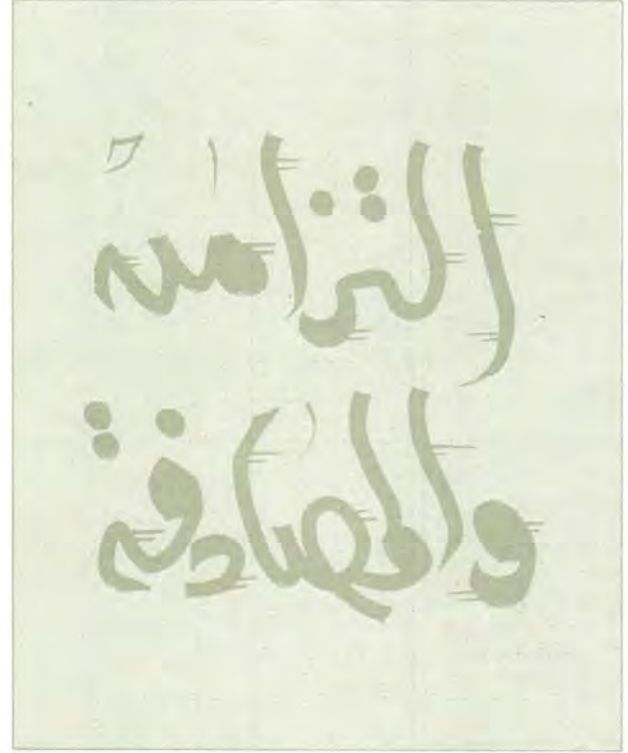 التزامن
والمصادفة